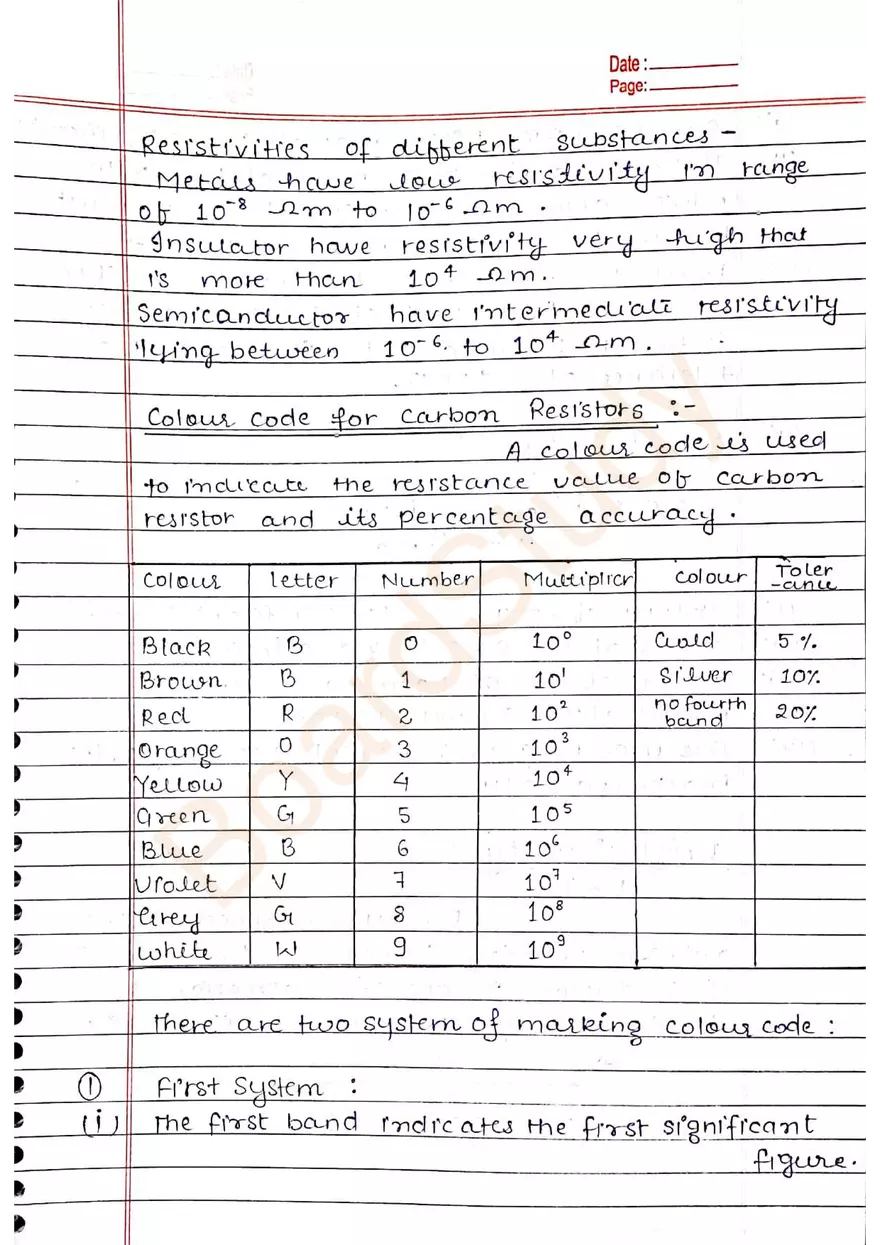 Date :
Page:
Resistivities of different substances -
Metals have low resistivity in range
of 10⁻⁸ Ωm to 10⁻⁶ Ωm .
Insulator have resistivity very high that
is more than 10⁴ Ωm.
Semiconductor have intermediate resistivity
lying between 10⁻⁶ to 10⁴ Ωm .
Colour code for Carbon Resistors :-
A colour code is used
to indicate the resistance value of carbon
resistor and its percentage accuracy .
Colour letter Number Multiplier Colour Toler
-ance
Black B 0 10⁰ Gold 5 %
Brown B 1 10¹ Silver 10%
Red R 2 10² no fourth
band 20%
Orange O 3 10³
Yellow Y 4 10⁴
Green G 5 10⁵
Blue B 6 10⁶
Violet V 7 10⁷
Grey G 8 10⁸
White W 9 10⁹
There are two system of marking colour code :
① First System :
(i) The first band indicates the first significant
figure.
BoardStudy